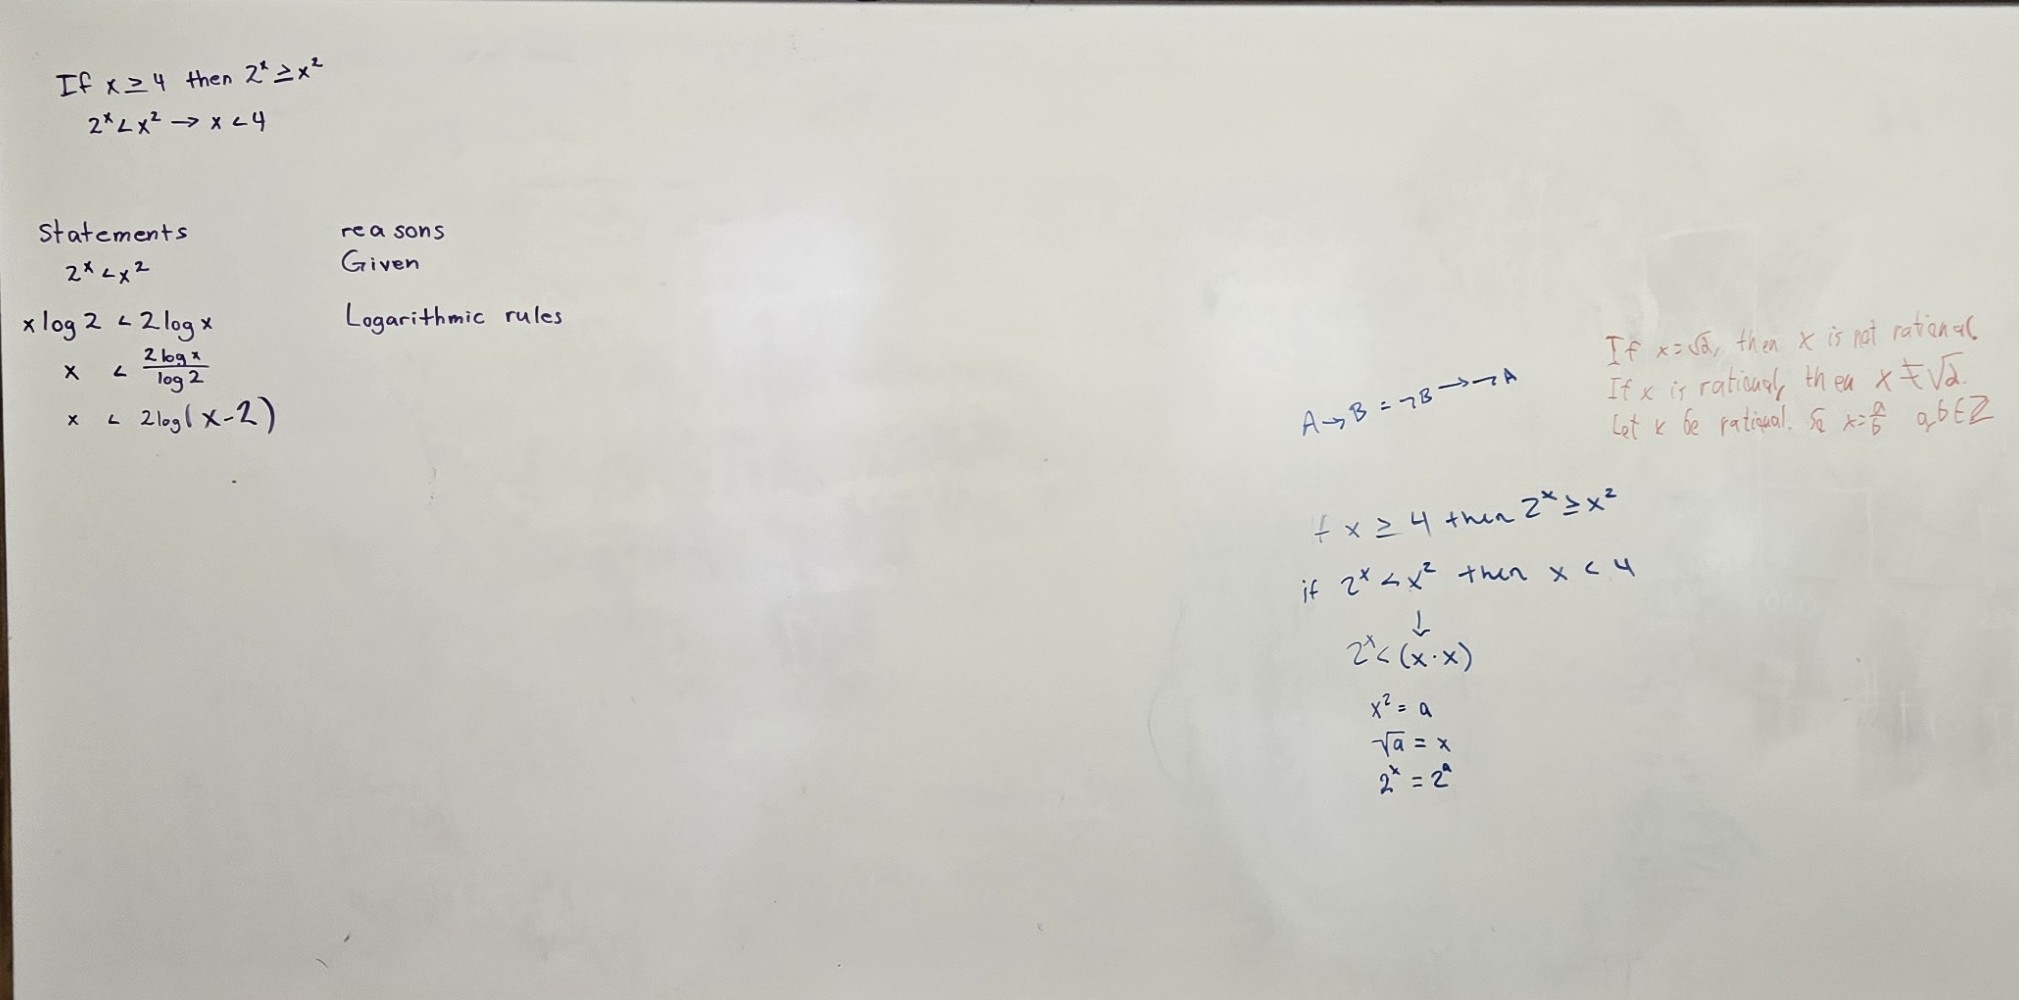 If x ≥ 4 then 2ˣ ≥ x²
2ˣ < x² → x < 4
Statements reasons
2ˣ < x² Given
x log 2 < 2 log x Logarithmic rules
x < 2 log x / log 2
x < 2 log(x-2)
If x = √2, then x is not rational.
If x is rational, then x ≠ √2.
Let x be rational. So x = a/b a,b ∈ Z
A → B = ¬B → ¬A
f x ≥ 4 then 2ˣ ≥ x²
if 2ˣ < x² then x < 4
↓
2ˣ < (x · x)
x² = a
√a = x
2ˣ = 2ᵃ